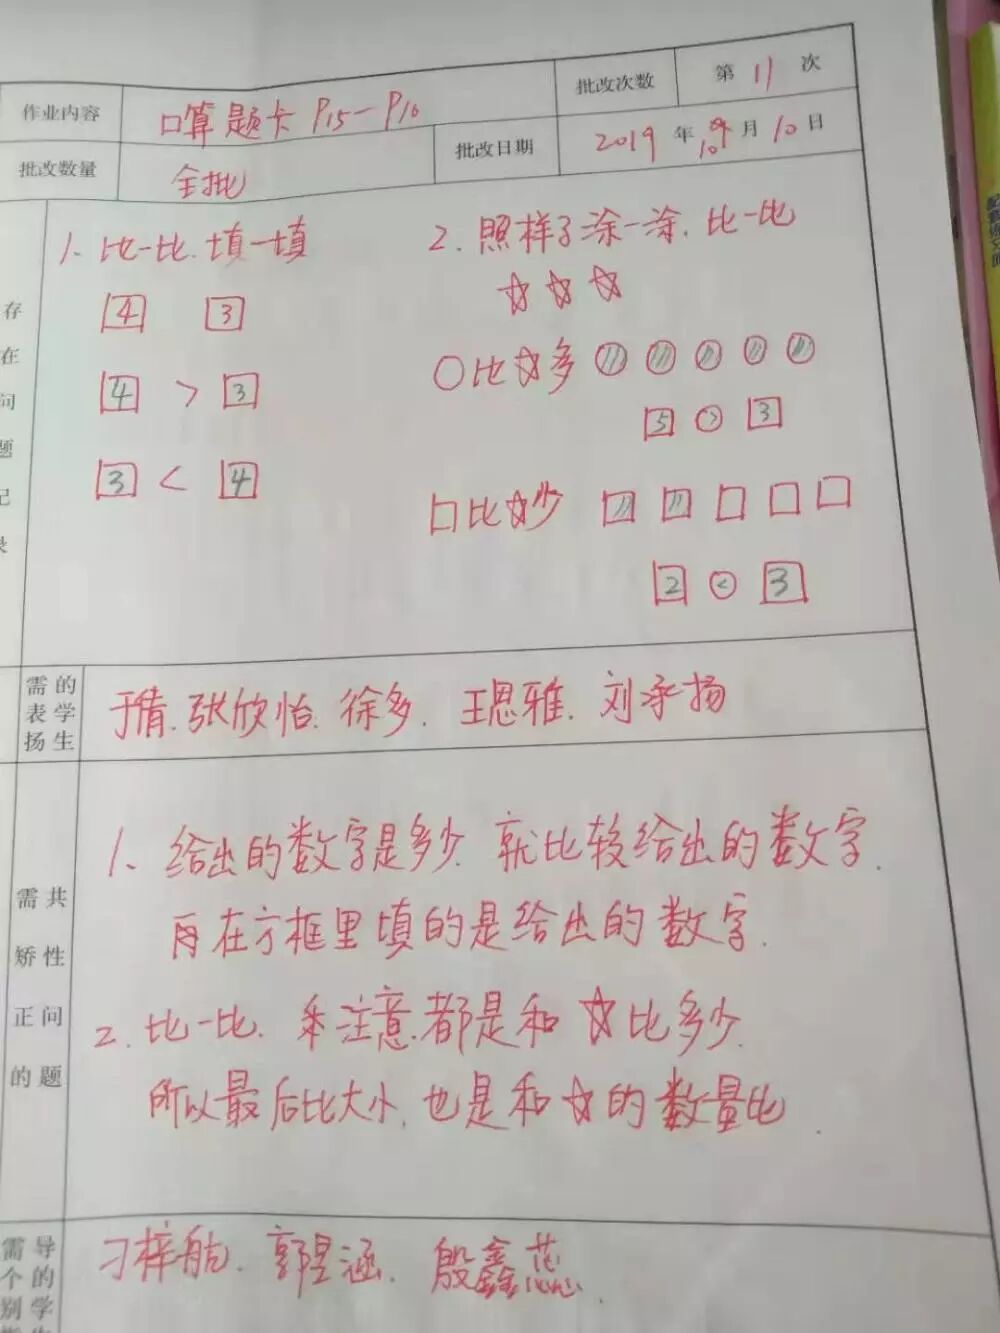 作业内容 口算题卡 P15-P16 批改次数 第 11 次
批改数量 全批 批改日期 2019 年 10 月 10 日
存在问题记录
1. 比一比. 填一填
4 3
4 > 3
3 < 4
2. 照样子涂一涂. 比一比
☆ ☆ ☆
○比☆多 ○ ○ ○ ○ ○
5 > 3
口比☆少 □ □ □ □ □
2 < 3
需表扬的学生 于倩. 张欣怡. 徐多. 王恩雅. 刘承扬
需矫正的共性问题
1、给出的数字是多少 就比较给出的数字.
再在方框里填的是给出的数字.
2. 比一比. 注意.都是和☆比多少.
所以最后比大小, 也是和☆的数量比.
需个别 导的学
刁梓航. 郭昱涵. 殷鑫蕊.